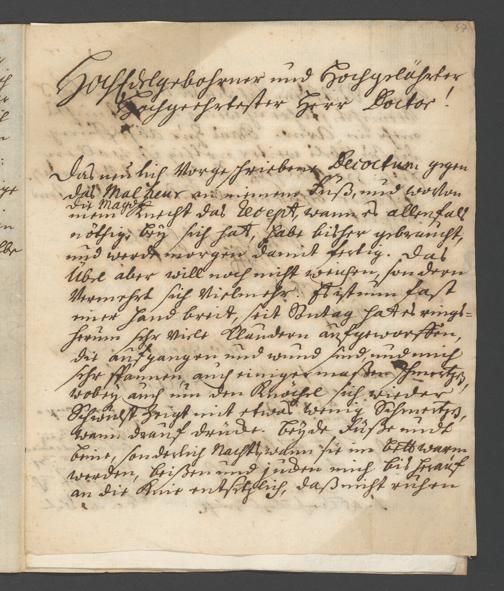 57
HochEdelgebohrner und Hochgelährter
Hochgeehrtester Herr Doctor!
Das neulich vorgeschriebene Decoctum gegen
das Malheur an meinem Fuß, und wovon
die Magd
mein Knecht das Recept, wann es allenfalls
nöthig, bey sich hat, habe bisher gebraucht,
und werde morgen damit fertig. Das
Übel aber will noch nicht weichen, sondern
vermehrt sich vielmehr. Es ist nun fast
einer Hand breit, seit hat es rings=
herum sehr viele aufgeworffen,
die aufgangen und wund sind, und mich
sehr spannen auch einigermaßen schmertzt,
wobey auch um den Knöchel sich wieder
Schwulst zeigt mit etwas wenig Schmertz,
wann drauf drücke. Beyde Füße und
beine, sonderlich Nachts wann sie im bett warm
werden, beißen und jucken mich bis herauf
an die Knie entsetzlich, daß nicht ruhen